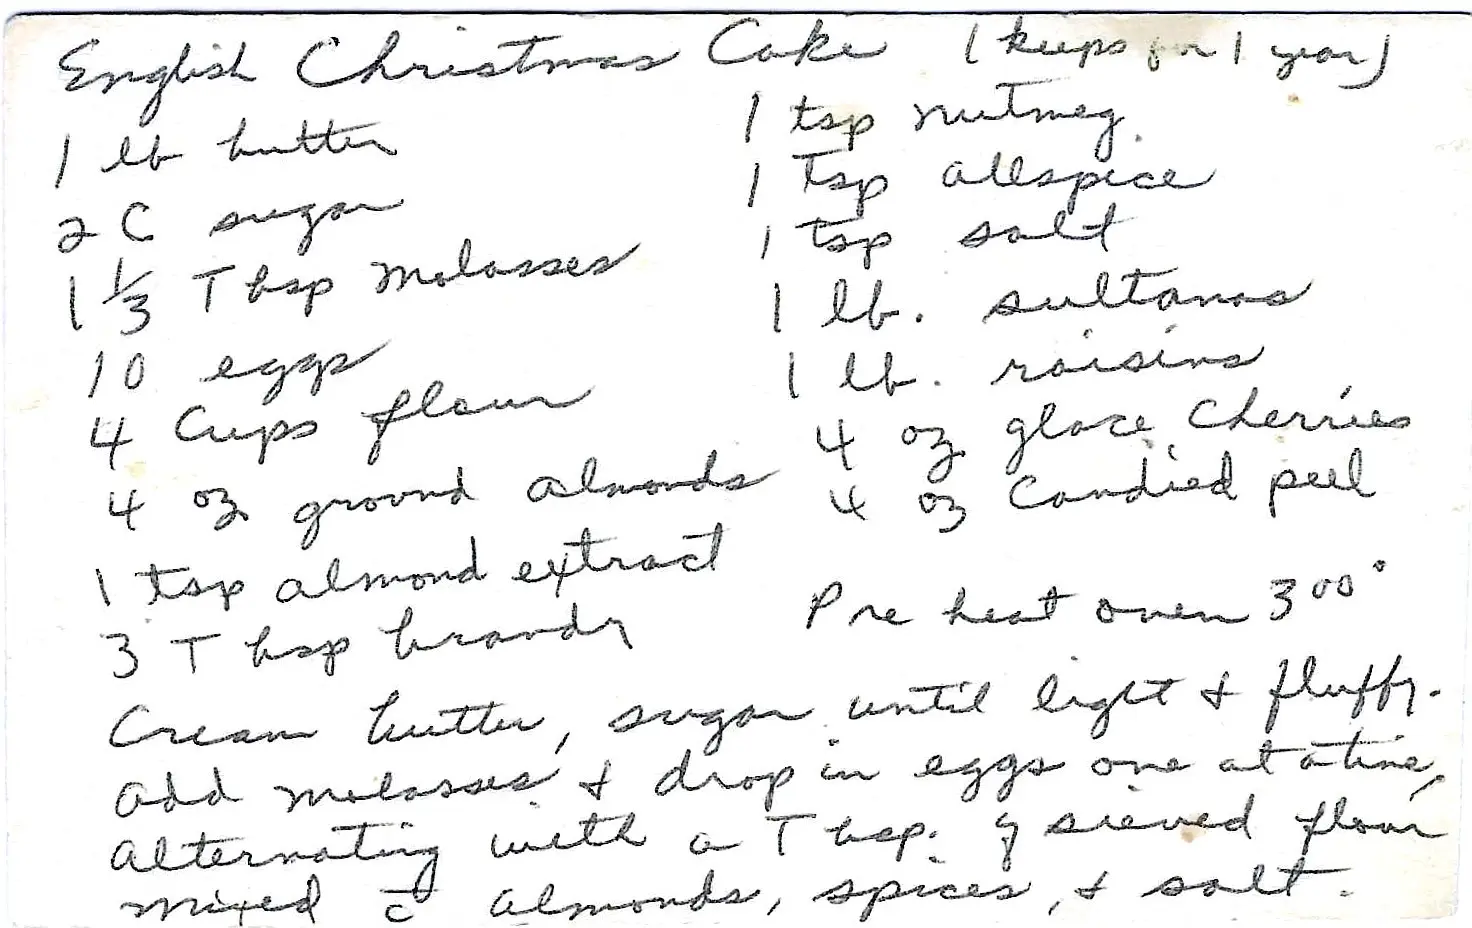 English Christmas Cake (keeps for 1 year)
1 lb butter
2 C sugar
1 1/3 Tbsp Molasses
10 eggs
4 Cups flour
4 oz ground almonds
1 tsp almond extract
3 Tbsp brandy
1 tsp nutmeg.
1 Tsp allspice
1 tsp salt
1 lb. sultanas
1 lb. raisins
4 oz glace Cherries
4 oz Candied peel
Pre heat oven 300°
Cream butter, sugar until light & fluffy.
Add molasses & drop in eggs one at a time,
alternating with a Tbsp. of sieved flour
mixed c̄ almonds, spices, & salt.